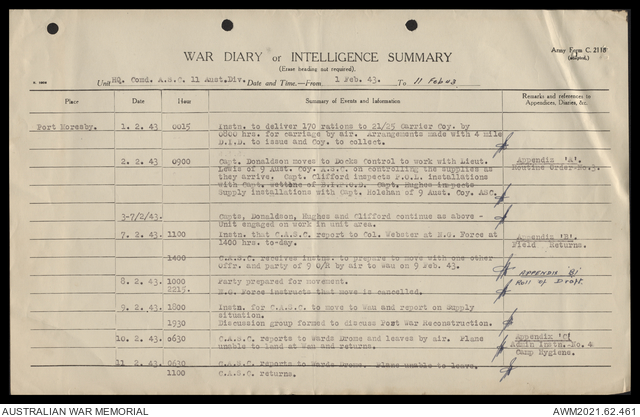 WAR DIARY or INTELLIGENCE SUMMARY
Army Form C. 2118
(Erase heading not required).
Unit HQ. Comd. A.S.C. 11 Aust.Div. Date and Time.—From 1 Feb. 43. To 11 Feb 43
Place Date Hour Summary of Events and Information Remarks and references to
Appendices, Diaries, &c.
Port Moresby. 1. 2. 43 0015 Instn. to deliver 170 rations to 21/25 Carrier Coy. by
0800 hrs. for carriage by air. Arrangements made with 4 mile
D.I.D. to issue and Coy. to collect.
2. 2. 43 0900 Capt. Donaldson moves to Docks Control to work with Lieut. Appendix 'A'.
Lewis of 9 Aust. Coy. A.S.C. on controlling the supplies as Routine Order No.3.
they arrive. Capt. Clifford inspects P.O.L. installations
with Capt. of Capt. Hughes inspects
Supply installations with Capt. Holehan of 9 Aust. Coy. ASC.
3-7/2/43. Capts. Donaldson, Hughes and Clifford continue as above -
Unit engaged on work in unit area.
7. 2. 43 1100 Instn. that C.A.S.C. report to Col. Webster at N.G. Force at Appendix 'B'.
1400 hrs. to-day. Field Returns.
1400 C.A.S.C. receives instns. to prepare to move with one other
offr. and party of 9 O/R by air to Wau on 9 Feb. 43. APPENDIX 'B'
8. 2. 43 1000 Party prepared for movement. Roll of Draft.
2215. N.G. Force instructs that move is cancelled.
9. 2. 43 1800 Instn. for C.A.S.C. to move to Wau and report on Supply
situation.
1930 Discussion group formed to discuss Post War Reconstruction.
10. 2. 43 0630 C.A.S.C. reports to Wards Drome and leaves by air. Plane Appendix 'C'
unable to land at Wau and returns. Admin Instn. No. 4
Camp Hygiene.
11 2. 43 0630 C.A.S.C. reports to Wards Drome. Plane unable to leave.
1100 C.A.S.C. returns.
AUSTRALIAN WAR MEMORIAL
AWM2021.62.461